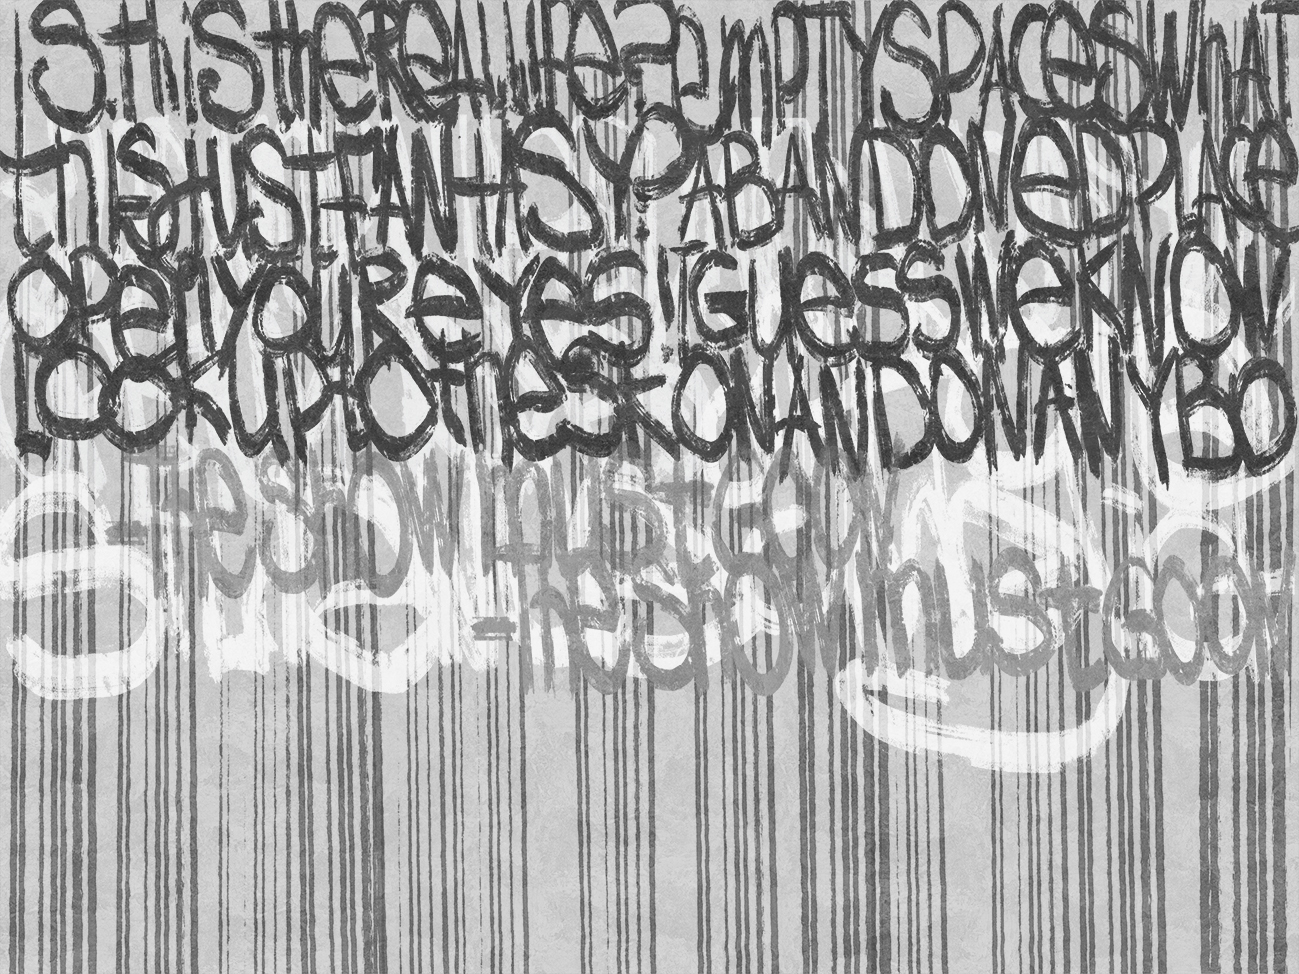 IS tHiS tHe ReAL LiFe? eMPTY SPACeS WHAT
tHiS JUSt FANtASY? ABANDONeD PLACe
OPeN YOUR eYeS "GUeSS We KNOW
LOOK UP tO tHe SK ON AND ON ANYBO
tHe SHOW MUSt GO ON
tHe SHOW MUSt GO ON